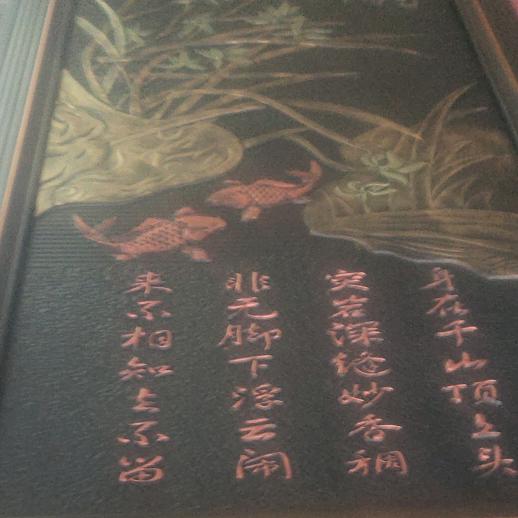 身在千山顶上头
突岩深缝妙香稠
非无脚下浮云闹
来不相知去不留